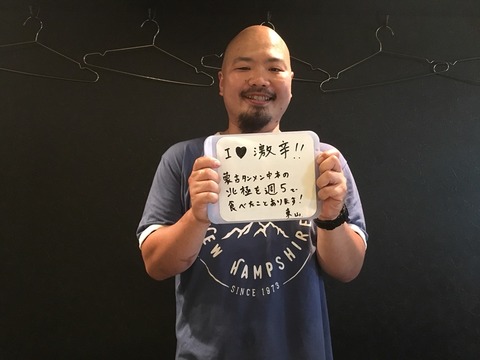 I♥激辛!!
蒙古タンメン中本の
北極を週5で
食べたことあります!
東山
NEW HAMPSHIRE
SINCE 1973